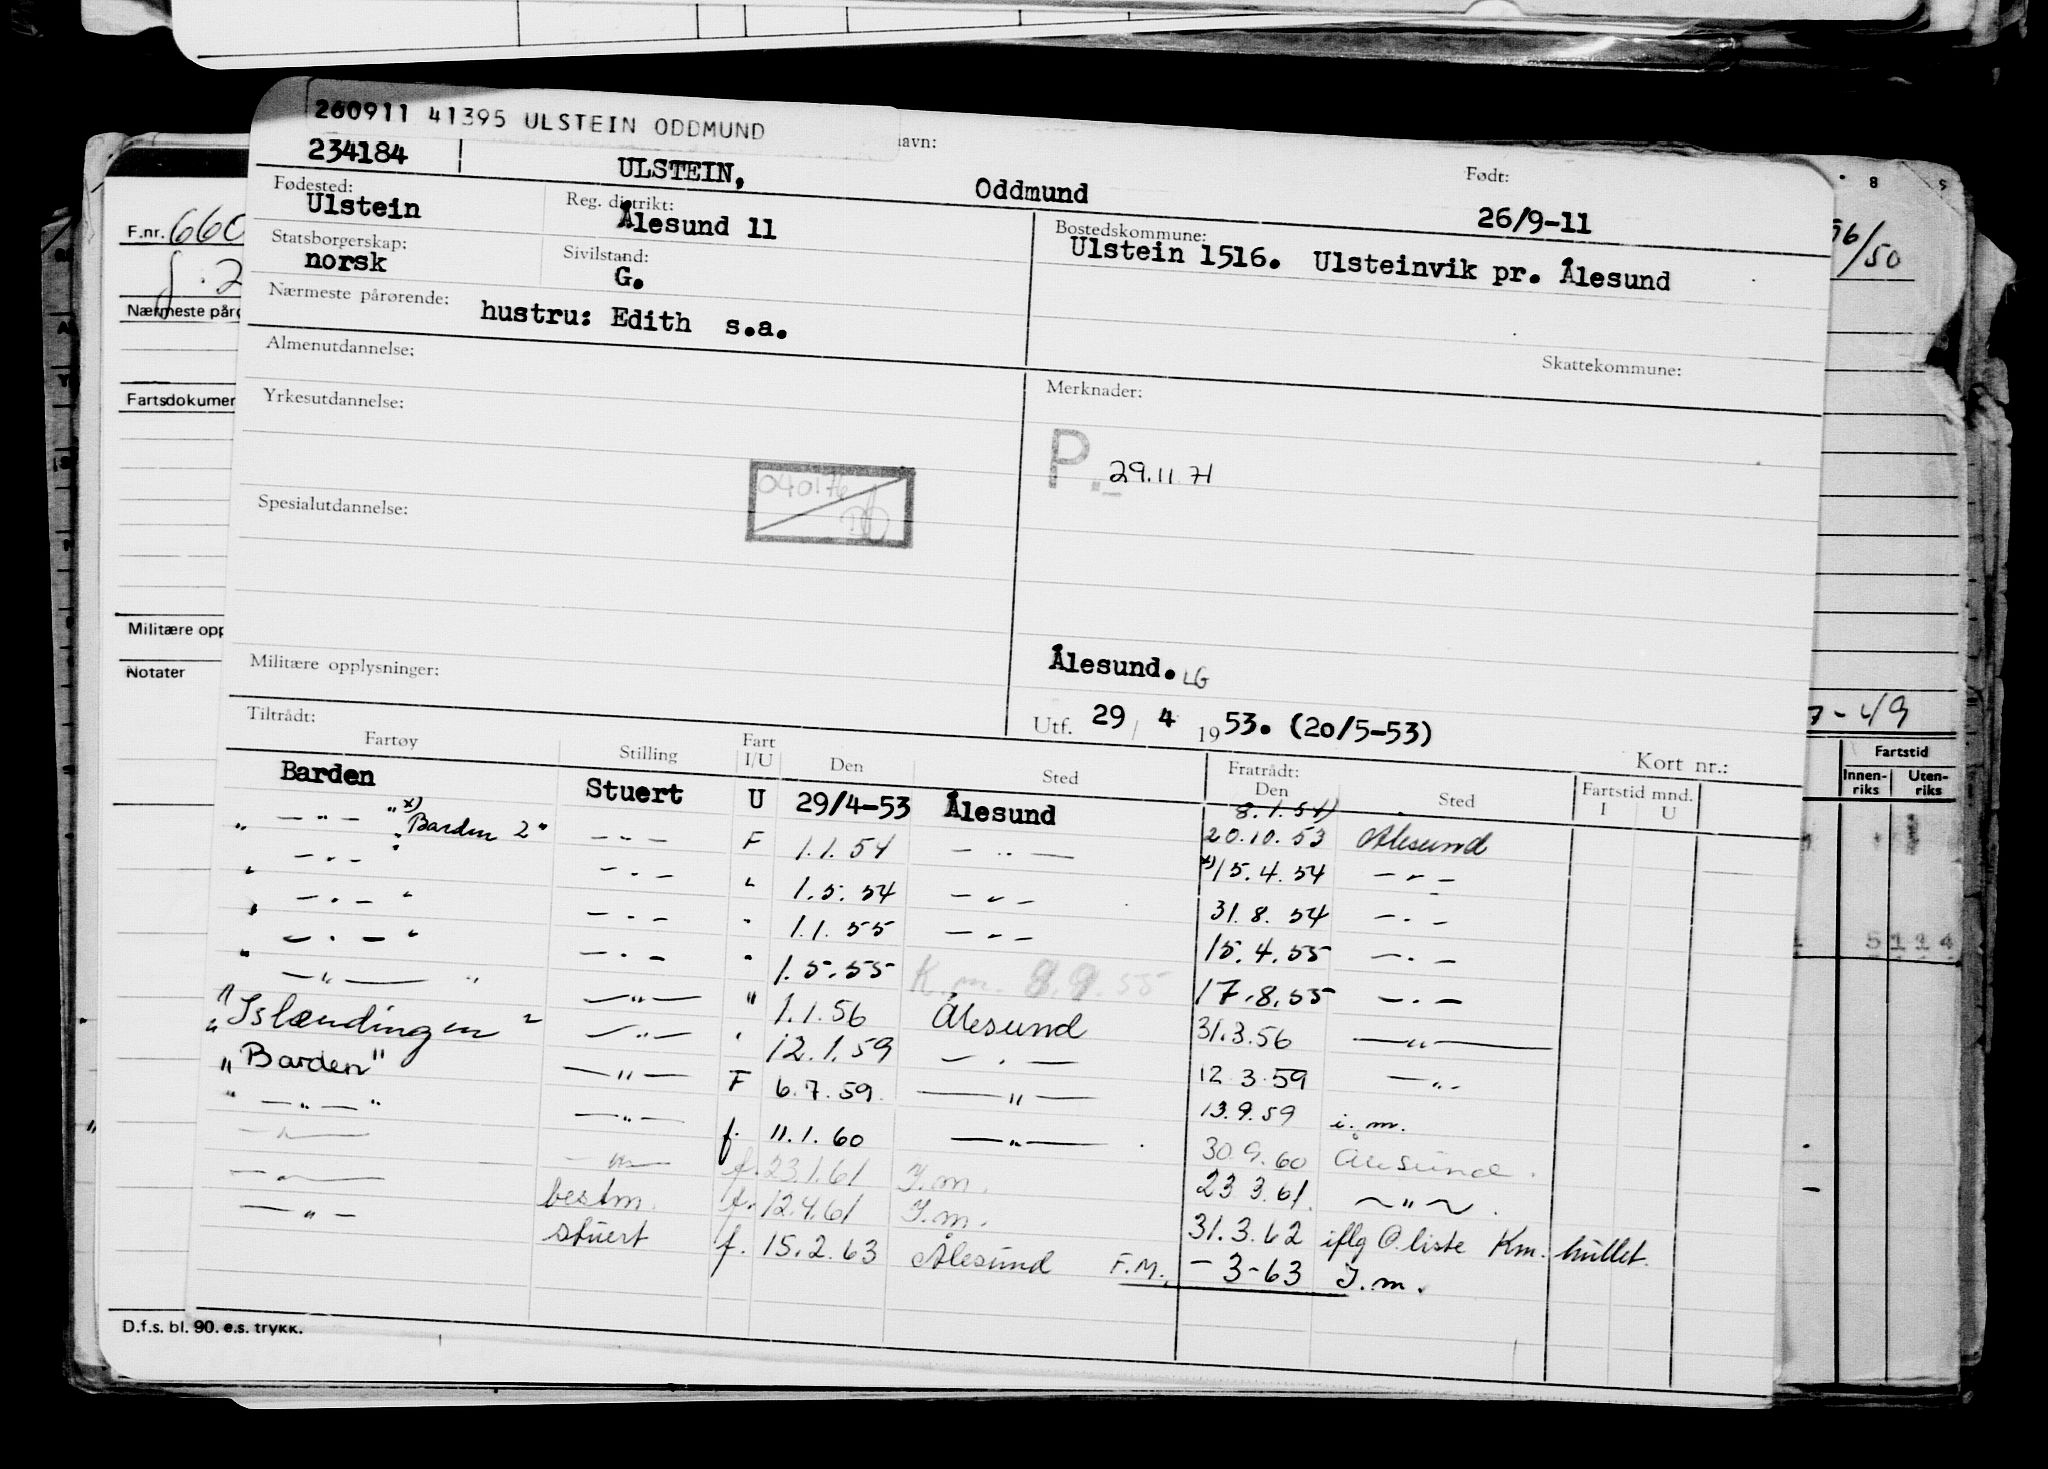 260911 41395 ULSTEIN ODDMUND
234184 ULSTEIN, Oddmund avn: Født: 26/9-11
Fødested: Ulstein Reg. distrikt: Ålesund 11 Bostedskommune: Ulstein 1516. Ulsteinvik pr. Ålesund
Statsborgerskap: norsk Sivilstand: G.
Nærmeste pårørende: hustru: Edith s.a.
Skattekommune:
Almenutdannelse:
Merknader:
Yrkesutdannelse:
P. 29.11 71
040176
Spesialutdannelse:
Militære opplysninger:
Ålesund. LG
Utf. 29 / 4 1953. (20/5-53)
Tiltrådt: Kort nr.:
Fartøy Stilling Fart I/U Den Sted Fratrådt: Den Sted Fartstid mnd. I U
Barden Stuert U 29/4-53 Ålesund 8.1.54) 20.10.53 Ålesund
— " — " x) Barden 2" — " — F 1.1.54 — " — x) 15.4.54 — " —
" — " — " — " — " 1.5.54 — " — 31.8.54 — " —
" — " — " — " — " 1.1.55 — " — 15.4.55 — " —
" — " — " — " — " 1.5.55 K.m. 8.9.55 17.8.55 — " —
" — " — " — " — " 1.1.56 Ålesund 31.3.56 — " —
" Islændingen " — " — " 12.1.59 — " — 12.3.59 — " —
" Barden " — " — F 6.7.59 — " — 13.9.59 i.m.
" — " — " — " — f. 11.1.60 — " — 30.9.60 Ålesund.
— " — — " — f. 23.1.61 I.m. 23.3.61. — " — .
— " — bestm. f. 12.4.61 I.m. 31.3.62 iflg O.liste Km. hullet.
— " — stuert f. 15.2.63 Ålesund F.M. — 3-63 I.m.
F.nr. 660
Nærmeste pårø
Fartsdokumen
Militære opp
Notater
D.f.s. bl. 90. e.s. trykk.
8 9
56/50
7-49
Fartstid
Innen-riks Uten-riks